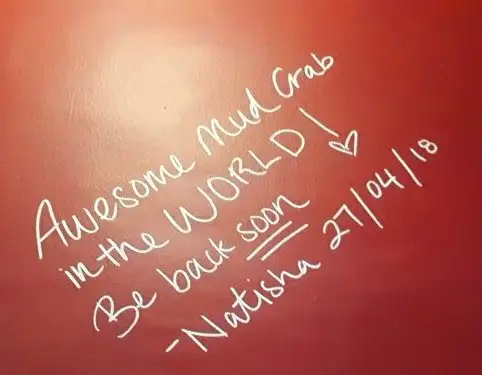 Awesome Mud Crab
in the WORLD!
Be back soon
-Natisha 27/04/18